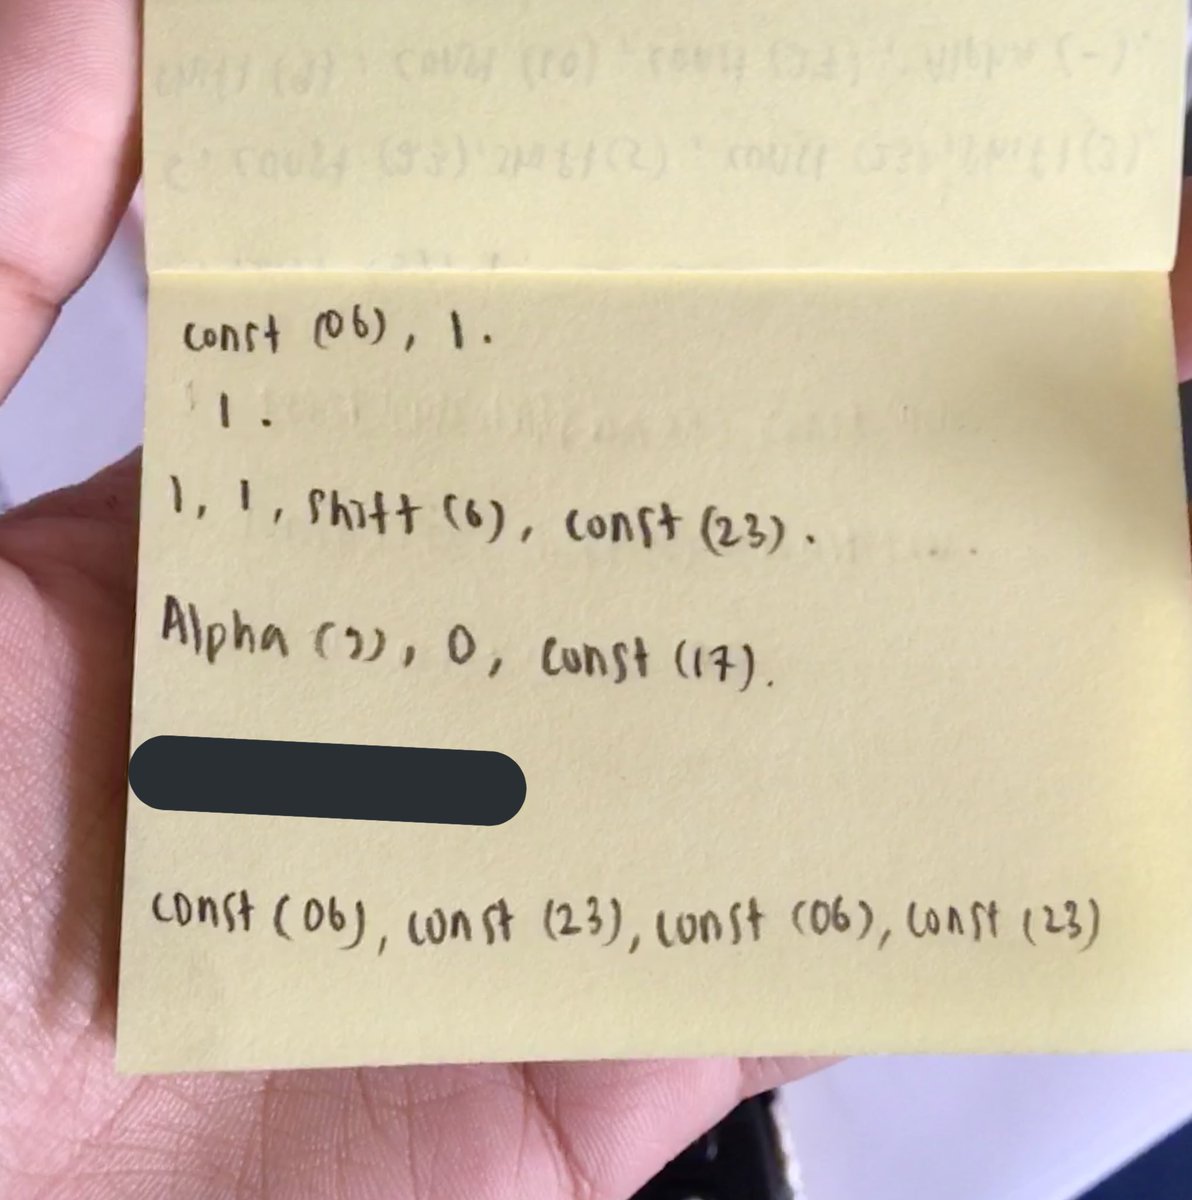 const (06), 1.
1.
1, 1, shift (6), const (23).
Alpha (2), 0, const (17).
const (06), const (23), const (06), const (23)